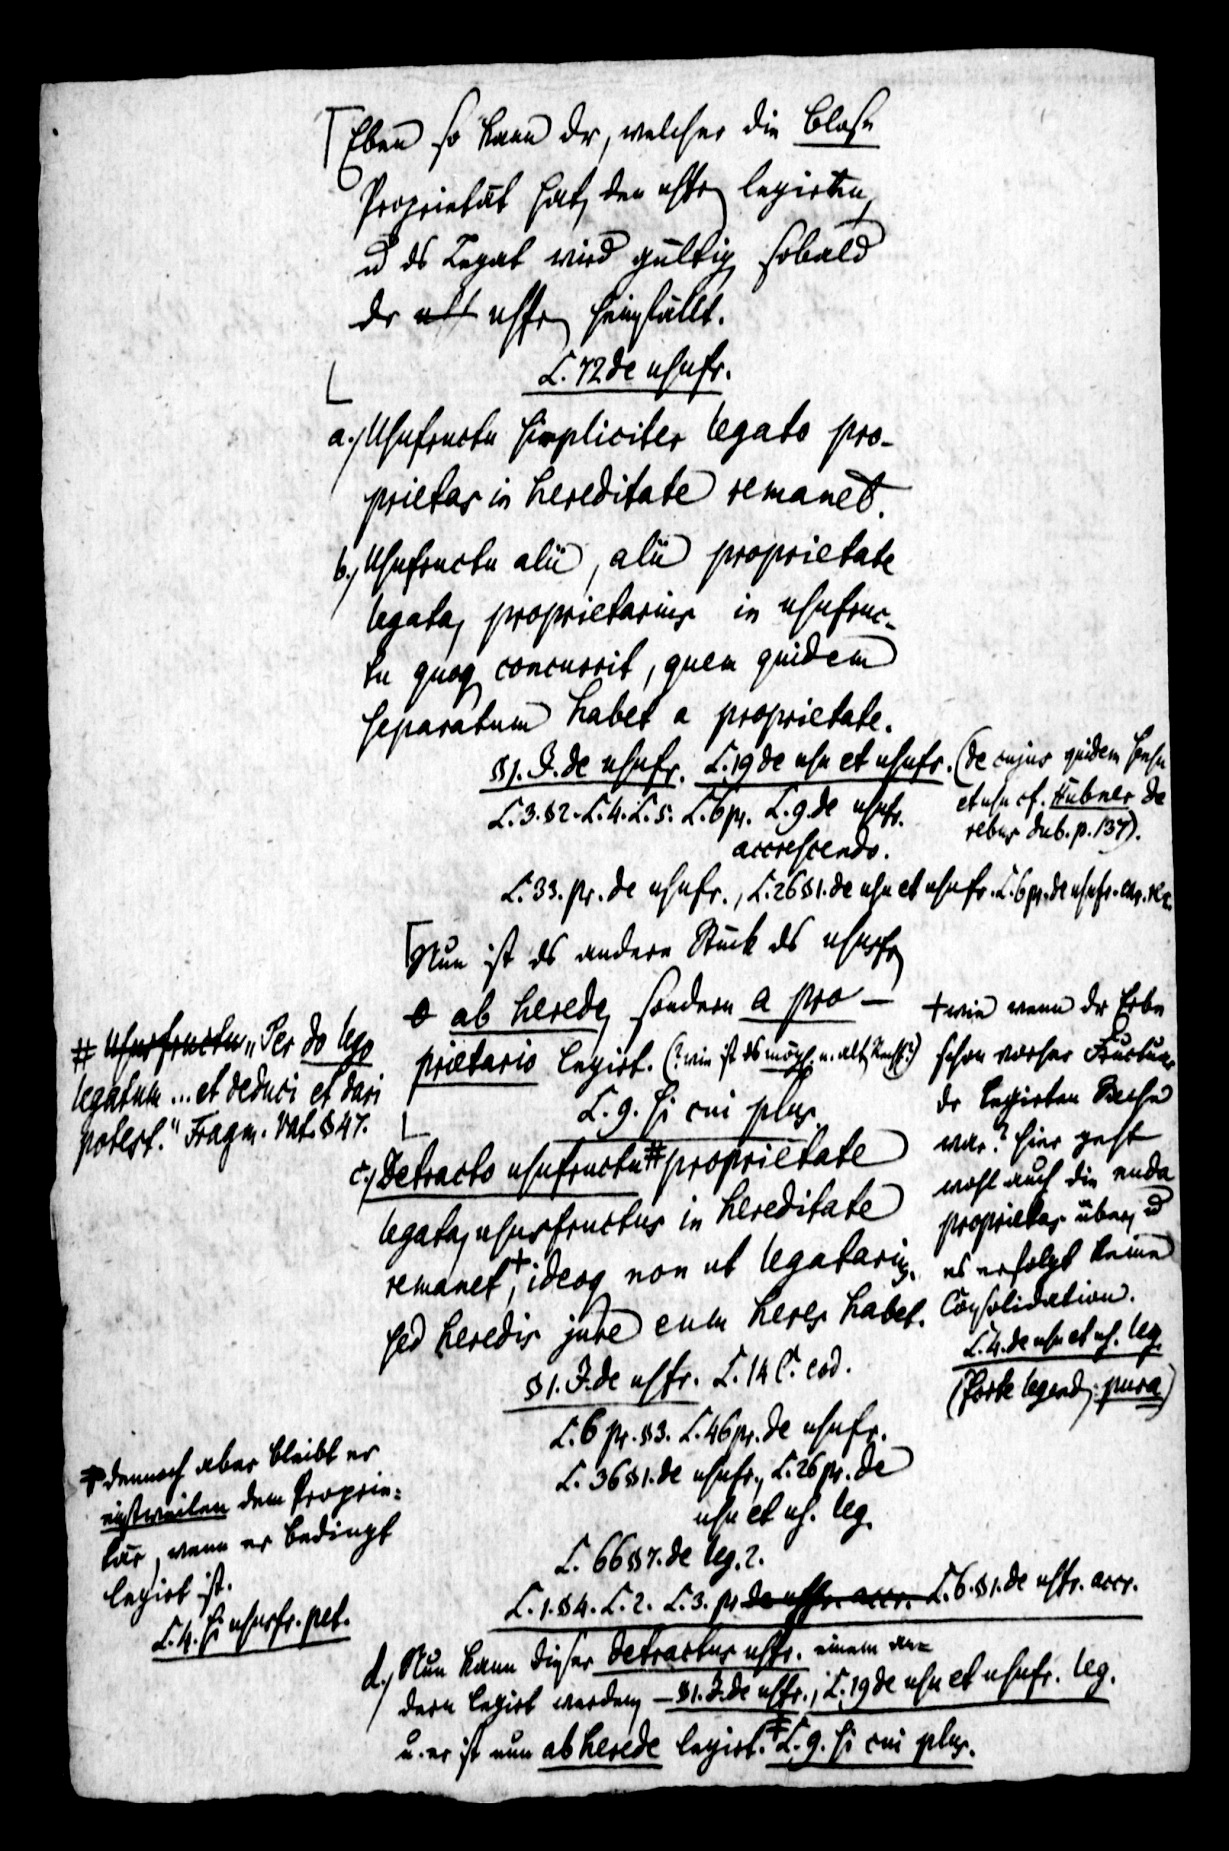 Eben so kann dr, welcher die bloße
Proprietät hat, den usfr. legirten,
u ds Legat wird gültig sobald
dr usfr. heimfällt.
L. 72 de usufr.
a.) Usufructu simpliciter legato pro-
prietas in hereditate remanet.
b.) Usufructu alii, alii proprietate
legata, proprietarius in usufruc-
tu quoq concurrit, quem quidem
separatum habet a proprietate.
§1. I. de usufr. L. 19 de usu et usufr. (de cujus quidem sensu
et usu cf. Hübner de
rebus dub. p. 137).
L. 3. §2. L. 4. L. 5. L. 6 pr. L. 9. de usufr.
accrescendo.
L. 33. pr. de usufr., L. 26 §1. de usu et usufr. L. 6 pr. de usufr. ear. re.
Nun ist ds andere Stück ds ususfr.
ab herede, sondern a pro-
prietario legirt. (? wie ist ds mögl. n. alt. Recht?)
L. 9. si cui plus
c.) Detracto usufructu # proprietate
legata, ususfructus in hereditate
remanet +, ideoq non ut legatarius,
sed heredis jure eum heres habet.
§1. I. de usfr. L. 14 C. eod.
L. 6 pr. §3. L. 46 pr. de usufr.
L. 36 §1. de usufr., L. 26 pr. de
usu et us. leg.
L. 66 §7. de leg. 2.
L. 1. §4. L. 2. L. 3. pr. de usfr. accr. L. 6. §1. de usfr. accr.
d.) Nun kann dieser detractus usfr. einem an-
dern legirt werden, — §1. I. de usfr., L. 19 de usu et usufr. leg.
u. er ist nun ab herede legirt. ‡ L. 9. si cui plus.
# Ususfructu „Per do lego
legatum ... et deduci et dari
potest." Fragm. Vat. §47.
+ wie wenn dr Erbe
schon vorher Fructuar
dr legirten Sache
war? hier geht
wohl auch die nuda
proprietas über, u
es erfolgt keine
Consolidation.
L. 4. de usu et us. leg.
(Forte legend. pura)
‡ dennoch aber bleibt er
einstweilen dem Proprie-
tär, wenn er bedingt
legirt ist.
L. 4. si ususfr. pet.